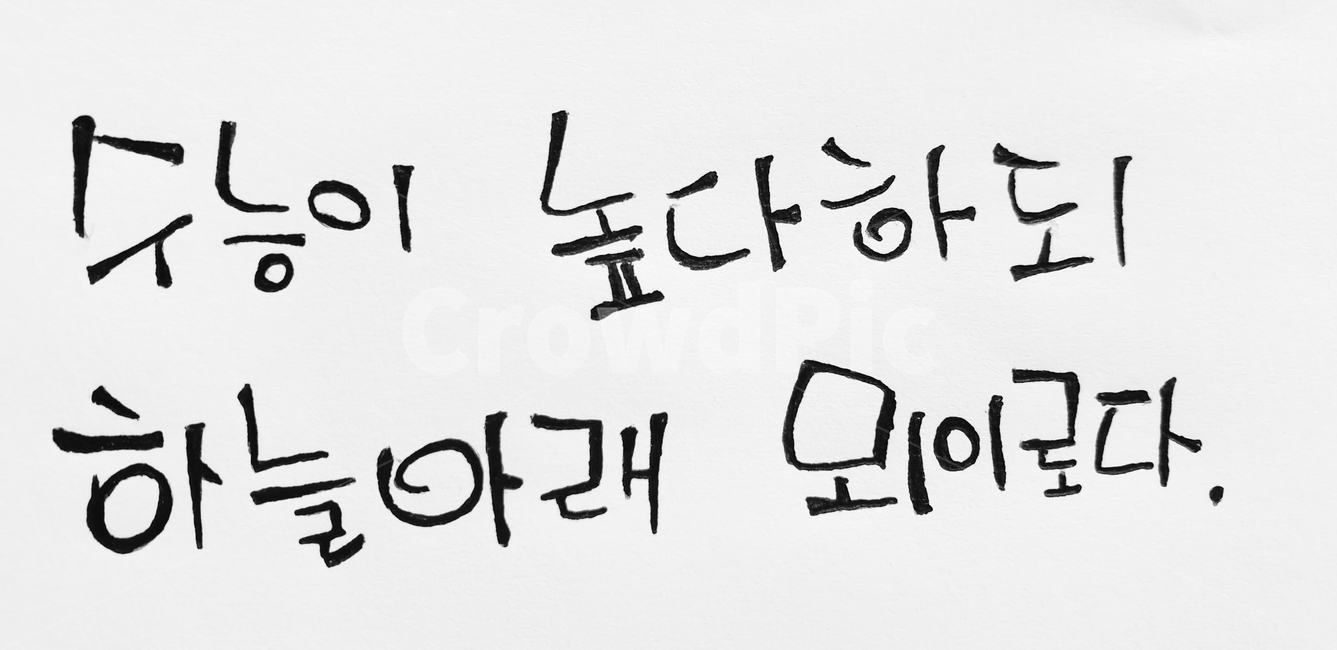 수능이 높다하되
하늘아래 뫼이로다.
CrowdPic